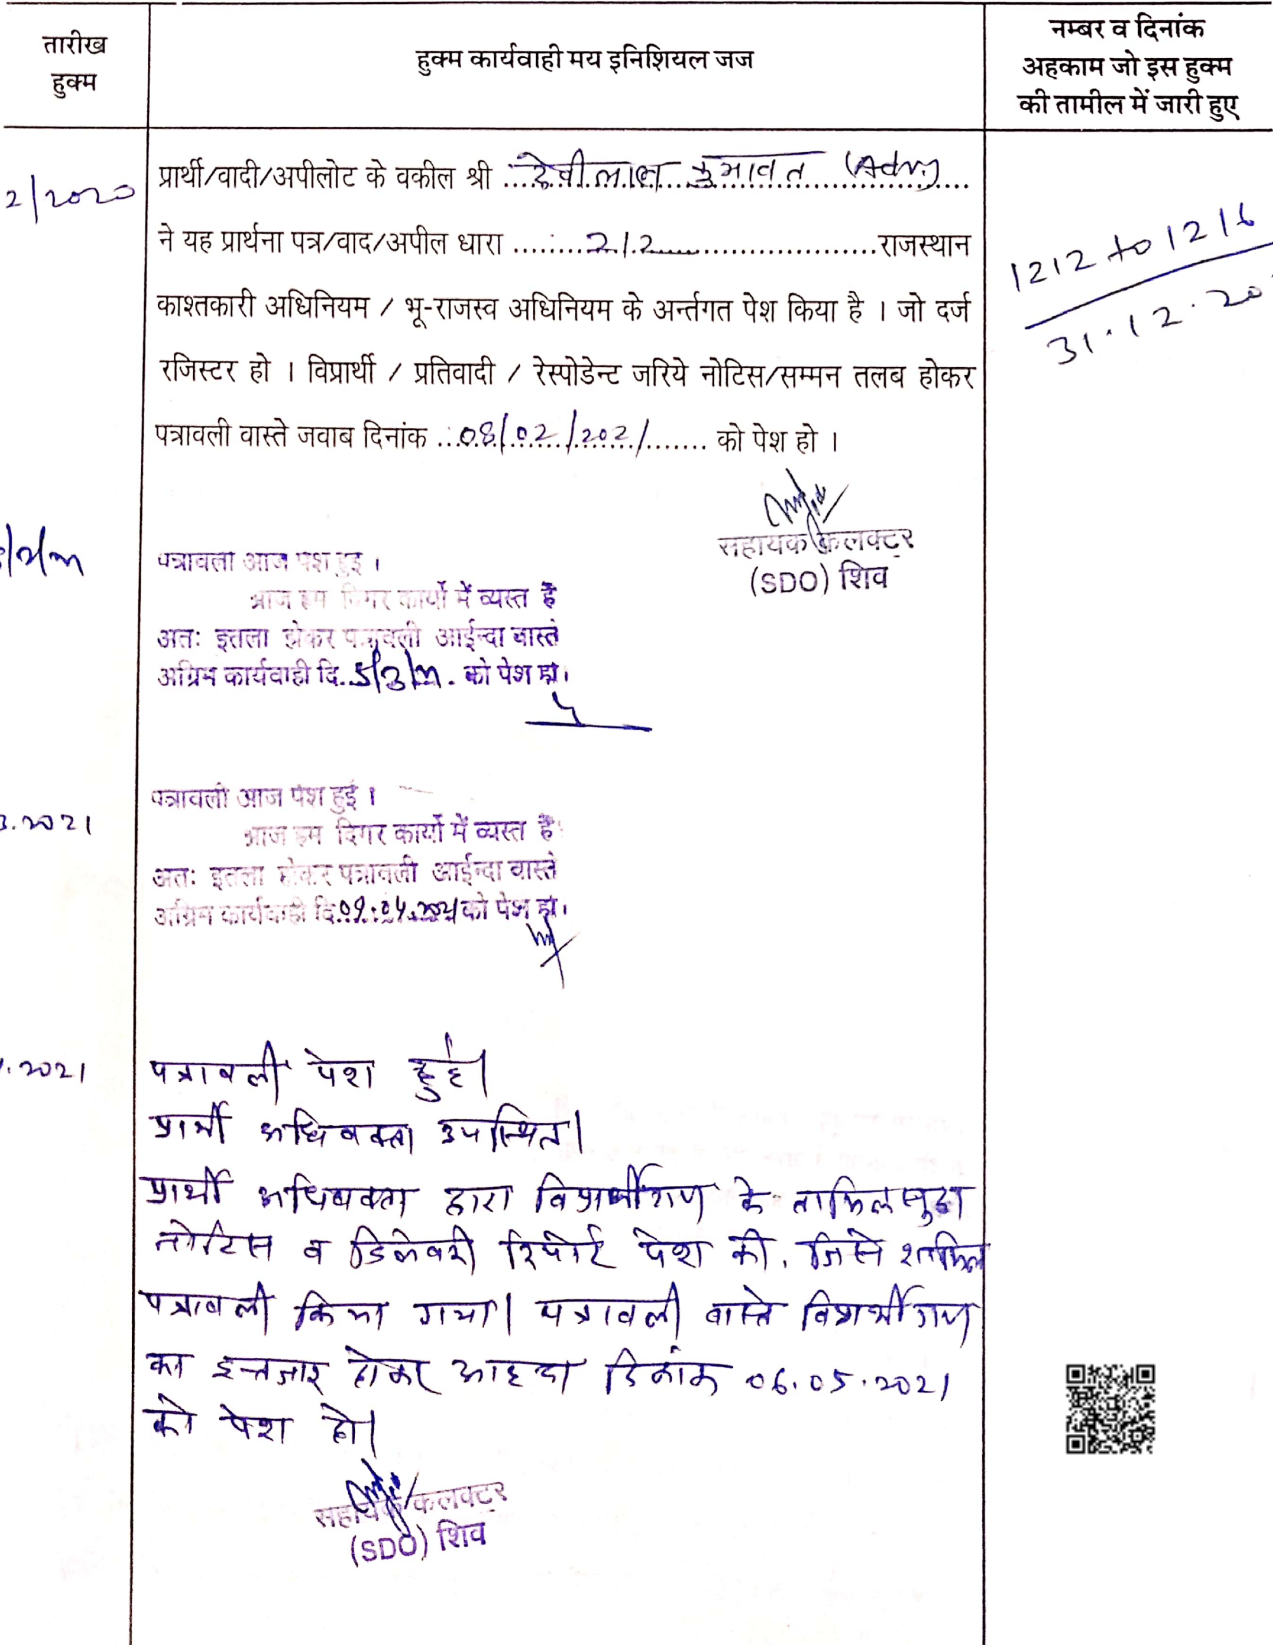 तारीख
हुक्म
हुक्म कार्यवाही मय इनिशियल जज
नम्बर व दिनांक
अहकाम जो इस हुक्म
की तामील में जारी हुए
2/2020
प्रार्थी/वादी/अपीलोट के वकील श्री ...देवीलाल कुमावत (Adv.)...
ने यह प्रार्थना पत्र/वाद/अपील धारा ......212......राजस्थान
काश्तकारी अधिनियम / भू-राजस्व अधिनियम के अर्न्तगत पेश किया है । जो दर्ज
रजिस्टर हो । विप्रार्थी / प्रतिवादी / रेस्पोडेन्ट जरिये नोटिस/सम्मन तलब होकर
पत्रावली वास्ते जवाब दिनांक ...08/02/2021....... को पेश हो ।
1212 to 1216
31.12.20
सहायक कलक्टर
(SDO) शिव
पत्रावली आज पेश हुई ।
आज हम दिगर कार्यो में व्यस्त है
अतः इतला होकर पत्रावली आईन्दा वास्ते
अग्रिम कार्यवाही दि. 5/3/21. को पेश हो।
3.2021
पत्रावली आज पेश हुई ।
आज हम दिगर कार्यो में व्यस्त है
अतः इतला होकर पत्रावली आईन्दा वास्ते
अग्रिम कार्यवाही दि.09.04.2021 को पेश हो।
.2021
पत्रावली पेश हुई।
प्रार्थी अधिवक्ता उपस्थित।
प्रार्थी अधिवक्ता द्वारा विप्रार्थीगण के तामिलसुदा
नोटिस व डिलेवरी रिपोर्ट पेश की, जिसे शामिल
पत्रावली किया गया। पत्रावली वास्ते विप्रार्थीगण
का इन्तजार होकर आइन्दा दिनांक 06.05.2021
को पेश हो।
सहायक कलक्टर
(SDO) शिव